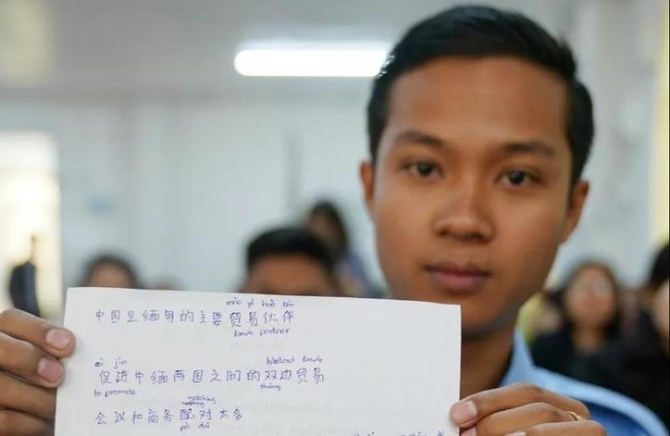 mào yì huǒ bàn
中国是缅甸的主要贸易伙伴
trade partner
cù jìn
bilateral trade
促进中缅两国之间的双边贸易
to promote
shuāng
matching
会议和商务配对大多
pèi duì